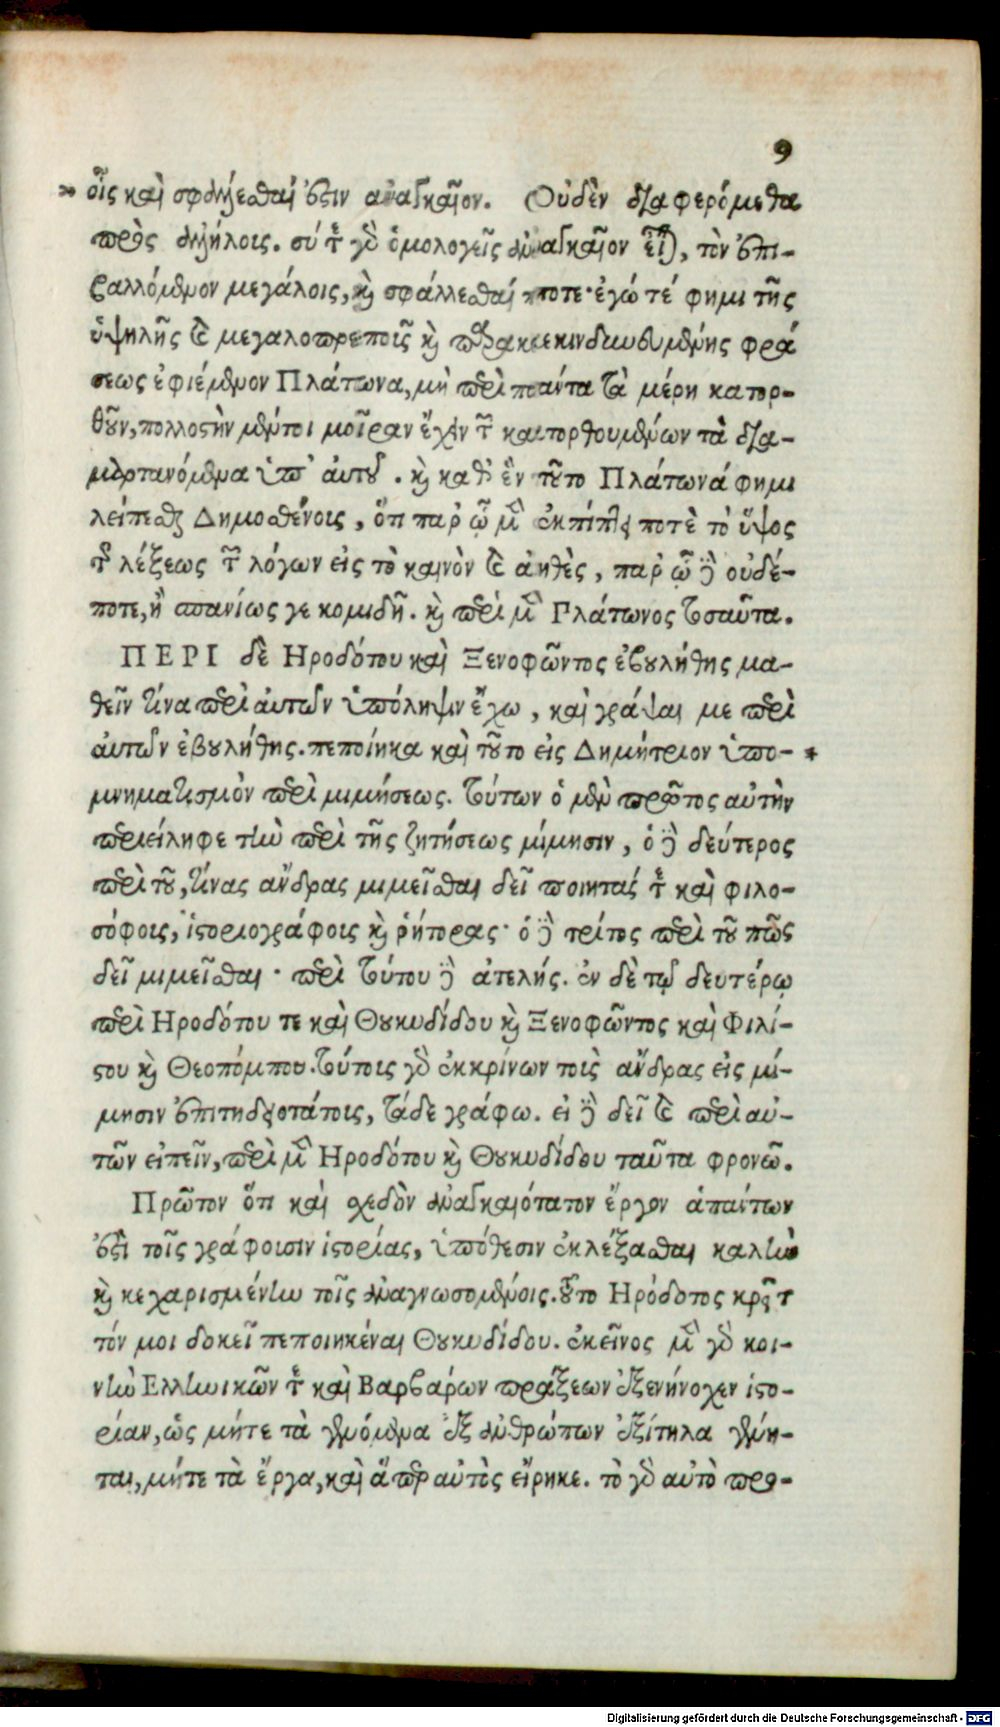 9
οἷς καὶ σφάλλεσθαί ἐστιν ἀναγκαῖον. Οὐδὲν διαφερόμεθα
πρὸς ἀλλήλοις. σύ τε γὰρ ὁμολογεῖς ἀναγκαῖον εἶναι, τὸν ἐπι-
βαλλόμενον μεγάλοις, καὶ σφάλλεσθαί ποτε· ἐγώ τέ φημι τῆς
ὑψηλῆς καὶ μεγαλοπρεποῦς καὶ παρακεκινδυνευμένης φρά
σεως ἐφιέμενον Πλάτωνα, μὴ περὶ πάντα τὰ μέρη κατορ-
θοῦν, πολλοστὴν μέντοι μοῖραν ἔχειν τῶν κατορθουμένων τὰ δια-
μαρτανόμενα ὑπ' αὐτοῦ. καὶ καθ' ἓν τοῦτο Πλάτωνά φημι
λείπεσθαι Δημοσθένοις, ὅτι παρ' ᾧ μὲν ἐκπίπτει ποτὲ τὸ ὕψος
τῆς λέξεως τῶν λόγων εἰς τὸ καινὸν καὶ ἀηθὲς, παρ' ᾧ δὲ οὐδέ-
ποτε, ἢ σπανίως γε κομιδῆ. καὶ περὶ μὲν Πλάτωνος τοσαῦτα.
ΠΕΡΙ δὲ Ηροδότου καὶ Ξενοφῶντος ἐβουλήθης μα-
θεῖν τίνα περὶ αὐτῶν ὑπόληψιν ἔχω, καὶ γράψαι με περὶ
αὐτῶν ἐβουλήθης. πεποίηκα καὶ τοῦτο εἰς Δημήτριον ὑπο- *
μνηματισμὸν περὶ μιμήσεως. τούτων ὁ μὲν πρῶτος αὐτὴν
περιείληφε τὴν περὶ τῆς ζητήσεως μίμησιν, ὁ δὲ δεύτερος
περὶ τοῦ, τίνας ἄνδρας μιμεῖσθαι δεῖ ποιητάς τε καὶ φιλο-
σόφοις, ἱστοριογράφοις καὶ ῥήτορας· ὁ δὲ τρίτος περὶ τοῦ πῶς
δεῖ μιμεῖσθαι· περὶ τούτου δὲ ἀτελής. ἐν δὲ τῷ δευτέρῳ
περὶ Ηροδότου τε καὶ Θουκυδίδου καὶ Ξενοφῶντος καὶ Φιλί-
στου καὶ Θεοπόμπου. τούτοις γὰρ ἐκκρίνων τοὶς ἄνδρας εἰς μί-
μησιν ἐπιτηδειοτάτοις, τάδε γράφω. εἰ δὲ δεῖ καὶ περὶ αὐ-
τῶν εἰπεῖν, περὶ μὲν Ηροδότου καὶ Θουκυδίδου ταῦτα φρονῶ.
Πρῶτον ὅτι καὶ σχεδὸν ἀναγκαιότατον ἔργον ἁπάντων
ἐστὶ τοῖς γράφοισιν ἱστορίας, ὑπόθεσιν ἐκλέξασθαι καλὴν
καὶ κεχαρισμένην τοῖς ἀναγνωσομένοις. τοῦτο Ηρόδοτος κρεῖτ
τόν μοι δοκεῖ πεποιηκέναι Θουκυδίδου. ἐκεῖνος μὲν γὰρ κοι-
νὴν Ελληνικῶν τε καὶ Βαρβάρων πράξεων ἐξενήνοχεν ἱστο-
ρίαν, ὡς μήτε τὰ γενόμενα ἐξ ἀνθρώπων ἐξίτηλα γένη-
ται, μήτε τὰ ἔργα, καὶ ἅπερ αὐτὸς εἴρηκε. τὸ γὰρ αὐτὸ προ-
Digitalisierung gefördert durch die Deutsche Forschungsgemeinschaft - DFG